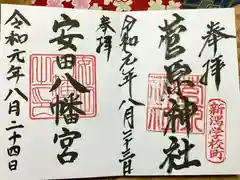 奉拝
(新潟学校町)
菅原神社
令和元年八月二十三日
奉拝
安田八幡宮
令和元年八月二十四日